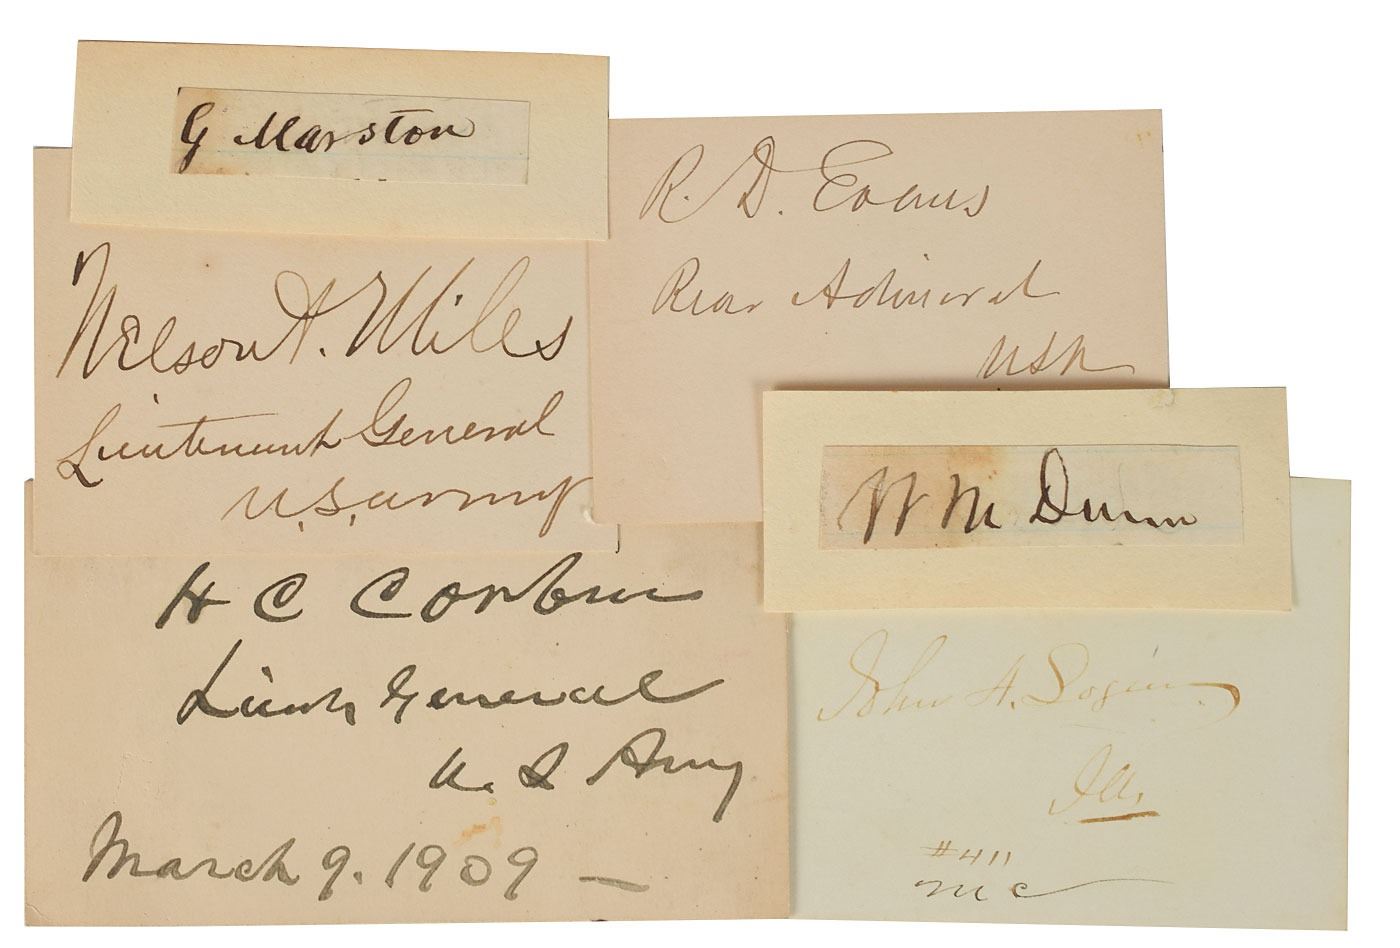 G Marston
Nelson A. Miles
Lieutenant General
U.S. army
R. D. Evans
Rear Admiral
USN
W M Dunn
H C Corbin
Lieut General
U. S Army
March 9. 1909 —
John A. Logan
Ill.
#411
MC